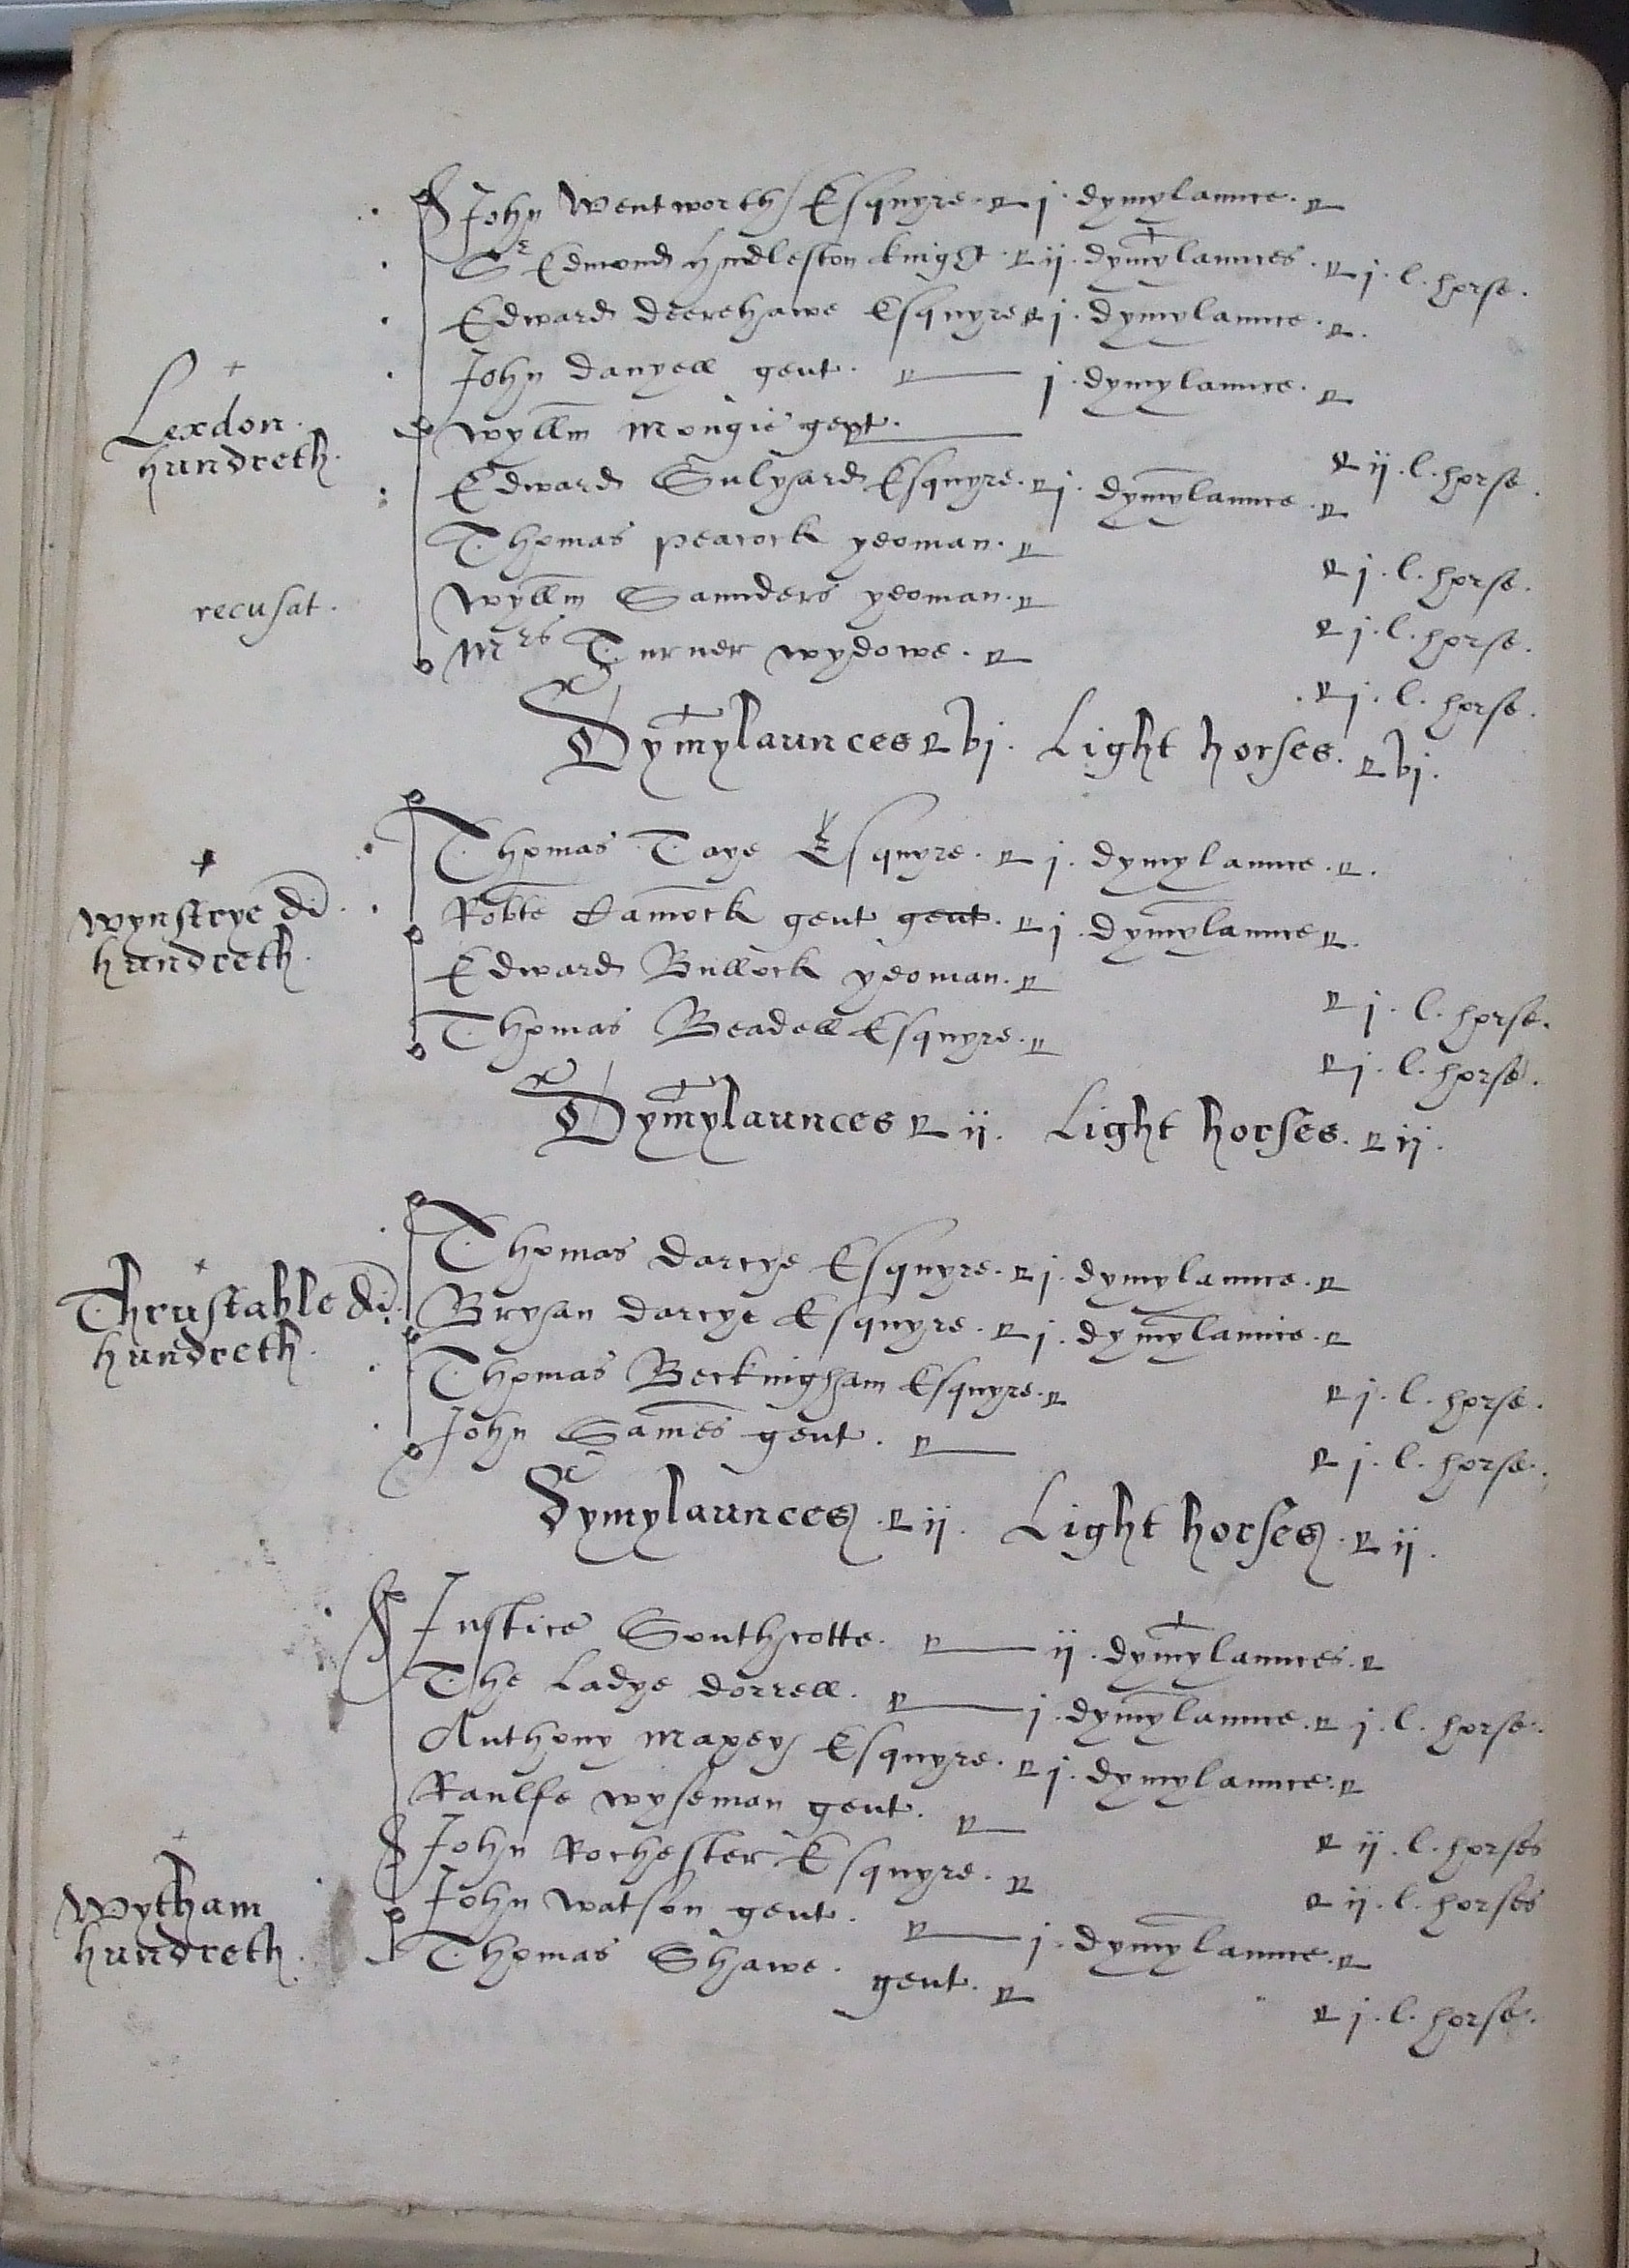 John Wentworth Esquyre. j. dymylaunce.
Sr Edmond Hudleston knight. ij. dymylaunces. j. l. horse.
Edward Deerehawe Esquyre j. dymylaunce.
John Danyell gent. j. dymylaunce.
Lexdon hundreth.
Wyllm Mongie gent. ij. l. horse.
Edward Sulyard Esquyre. j. dymylaunce.
Thomas Peacock yeoman. j. l. horse.
recusat. Wyllm Saunders yeoman. j. l. horse.
Mrs Turner wydowe. j. l. horse.
Dymylaunces vj. Light horses. vj.
Thomas Taye Esquyre. j. dymylaunce.
Wynstrye di. hundreth.
Robte Camock gent gent. j. dymylaunce.
Edward Bullock yeoman. j. l. horse.
Thomas Beadell Esquyre. j. l. horse.
Dymylaunces ij. Light horses. ij.
Thomas Darcye Esquyre. j. dymylaunce.
Thrustable di. hundreth.
Bryan Darcye Esquyre. j. dymylaunce.
Thomas Beckingham Esquyre. j. l. horse.
John Sames gent. j. l. horse.
Dymylaunces. ij. Light horses. ij.
Justice Southcotte. ij. dymylaunces.
The Ladye Dorrell. j. dymylaunce. j. l. horse.
Anthony Maxey Esquyre. j. dymylaunce.
Raulfe Wyseman gent. ij. l. horses
John Rochester Esquyre. ij. l. horses
Wytham hundreth.
John Watson gent. j. dymylaunce.
Thomas Shawe. gent. j. l. horse.